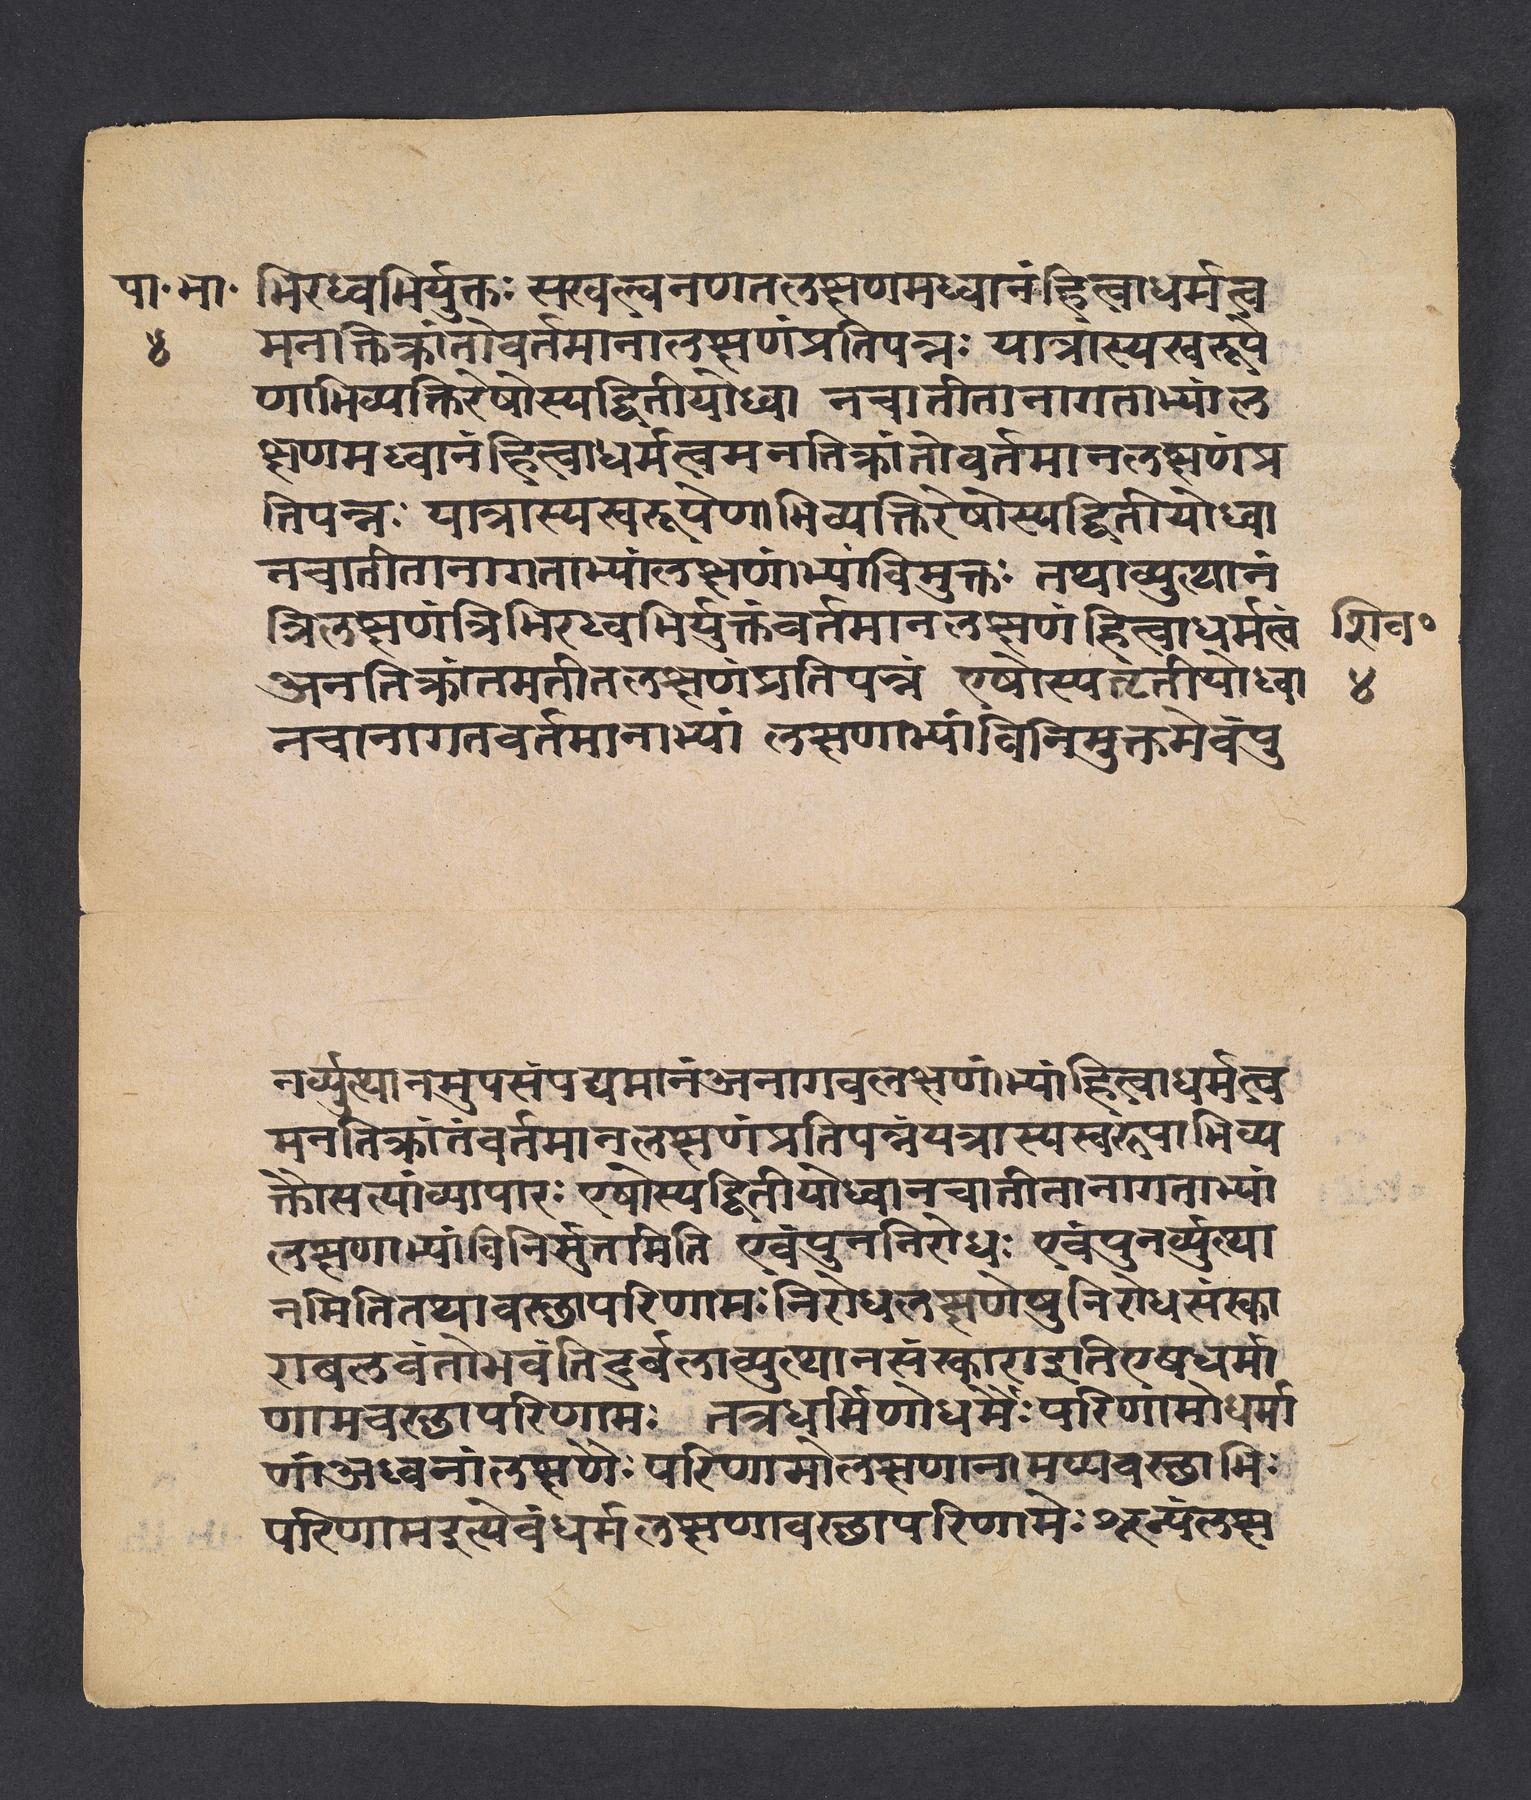 पा॰भा॰ भिरध्वभिर्युक्तः सखल्वनणतलक्षणमध्वानंहित्वाधर्मत्व
४ मनाक्तिक्रांतोवर्तमानालक्षणंप्रतिपन्नः यात्रास्यस्वरूपे
णाभिव्यक्तिरेषोस्यद्वितीयोध्वा नचातीतानागताभ्यांल
क्षणमध्वानंहित्वाधर्मत्वमनतिक्रांतोवर्तमानलक्षणंप्र
तिपन्नः यात्रास्यस्वरूपेणाभिव्यक्तिरेषोस्यद्वितीयोध्वा
नचातीतानागताभ्यांलक्षणंाभ्यांविमुक्तः तथाव्युत्थानं
त्रिलक्षणंत्रिभिरध्वभिर्युक्तंवर्तमानलक्षणंहित्वाधर्मत्वं शिव॰
अनतिक्रांतमतीतलक्षणंप्रतिपन्नं एषोस्यतृतीयोध्वा ४
नचानागतवर्तमानाभ्यां लक्षणाभ्यांविनिमुक्तमेवंपु
नर्व्युत्थानमुपसंपद्यमानंअनागवलक्षणंाभ्यांहित्वाधर्मत्व
मनतिक्रांतंवर्तमानलक्षणंप्रतिपन्नंयत्रास्यस्वरूपाभिव्य
क्तौसत्यांव्यापारः एषोस्यद्वितीयोध्वानचातीतानागताभ्यां
लक्षणाभ्यांविनिर्मुक्तामिति एवंपुननिरोधः एवंपुनर्व्युत्था
नमितितथावस्छापरिणामःनिरोधलक्षणेषुनिरोधसंस्का
राबलवंतोभवंतिदुर्बलाव्युत्थानसंस्काराइतिएषधर्मा
णामवस्छापरिणामः तत्रधर्मिणोधर्मैःपरिणामोधर्मा
णांअध्वनांलक्षणैःपरिणामोलक्षणानामप्यवस्छाभिः
परिणामइत्येवंधर्मलक्षणावस्छापरिणामेःशून्यंलक्ष